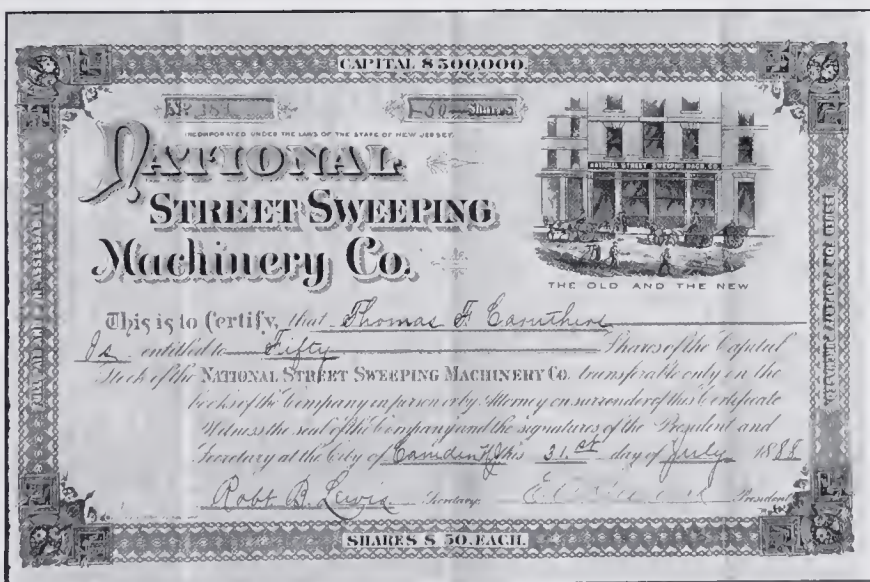 CAPITAL $500,000.
50 Shares
INCORPORATED UNDER THE LAWS OF THE STATE OF NEW JERSEY.
NATIONAL
STREET SWEEPING
Machinery Co.
NATIONAL STREET SWEEPING MACH. CO.
THE OLD AND THE NEW
This is to Certify, that Thomas F. Caruthers
Is entitled to Fifty Shares of the Capital
Stock of the NATIONAL STREET SWEEPING MACHINERY CO. transferable only on the
books of the Company in person or by Attorney on surrender of this Certificate
Witness the seal of the Company and the signatures of the President and
Secretary at the City of Camden NJ this 31.st day of July 1888
Robt B. Lewis Secretary President
SHARES $50. EACH.